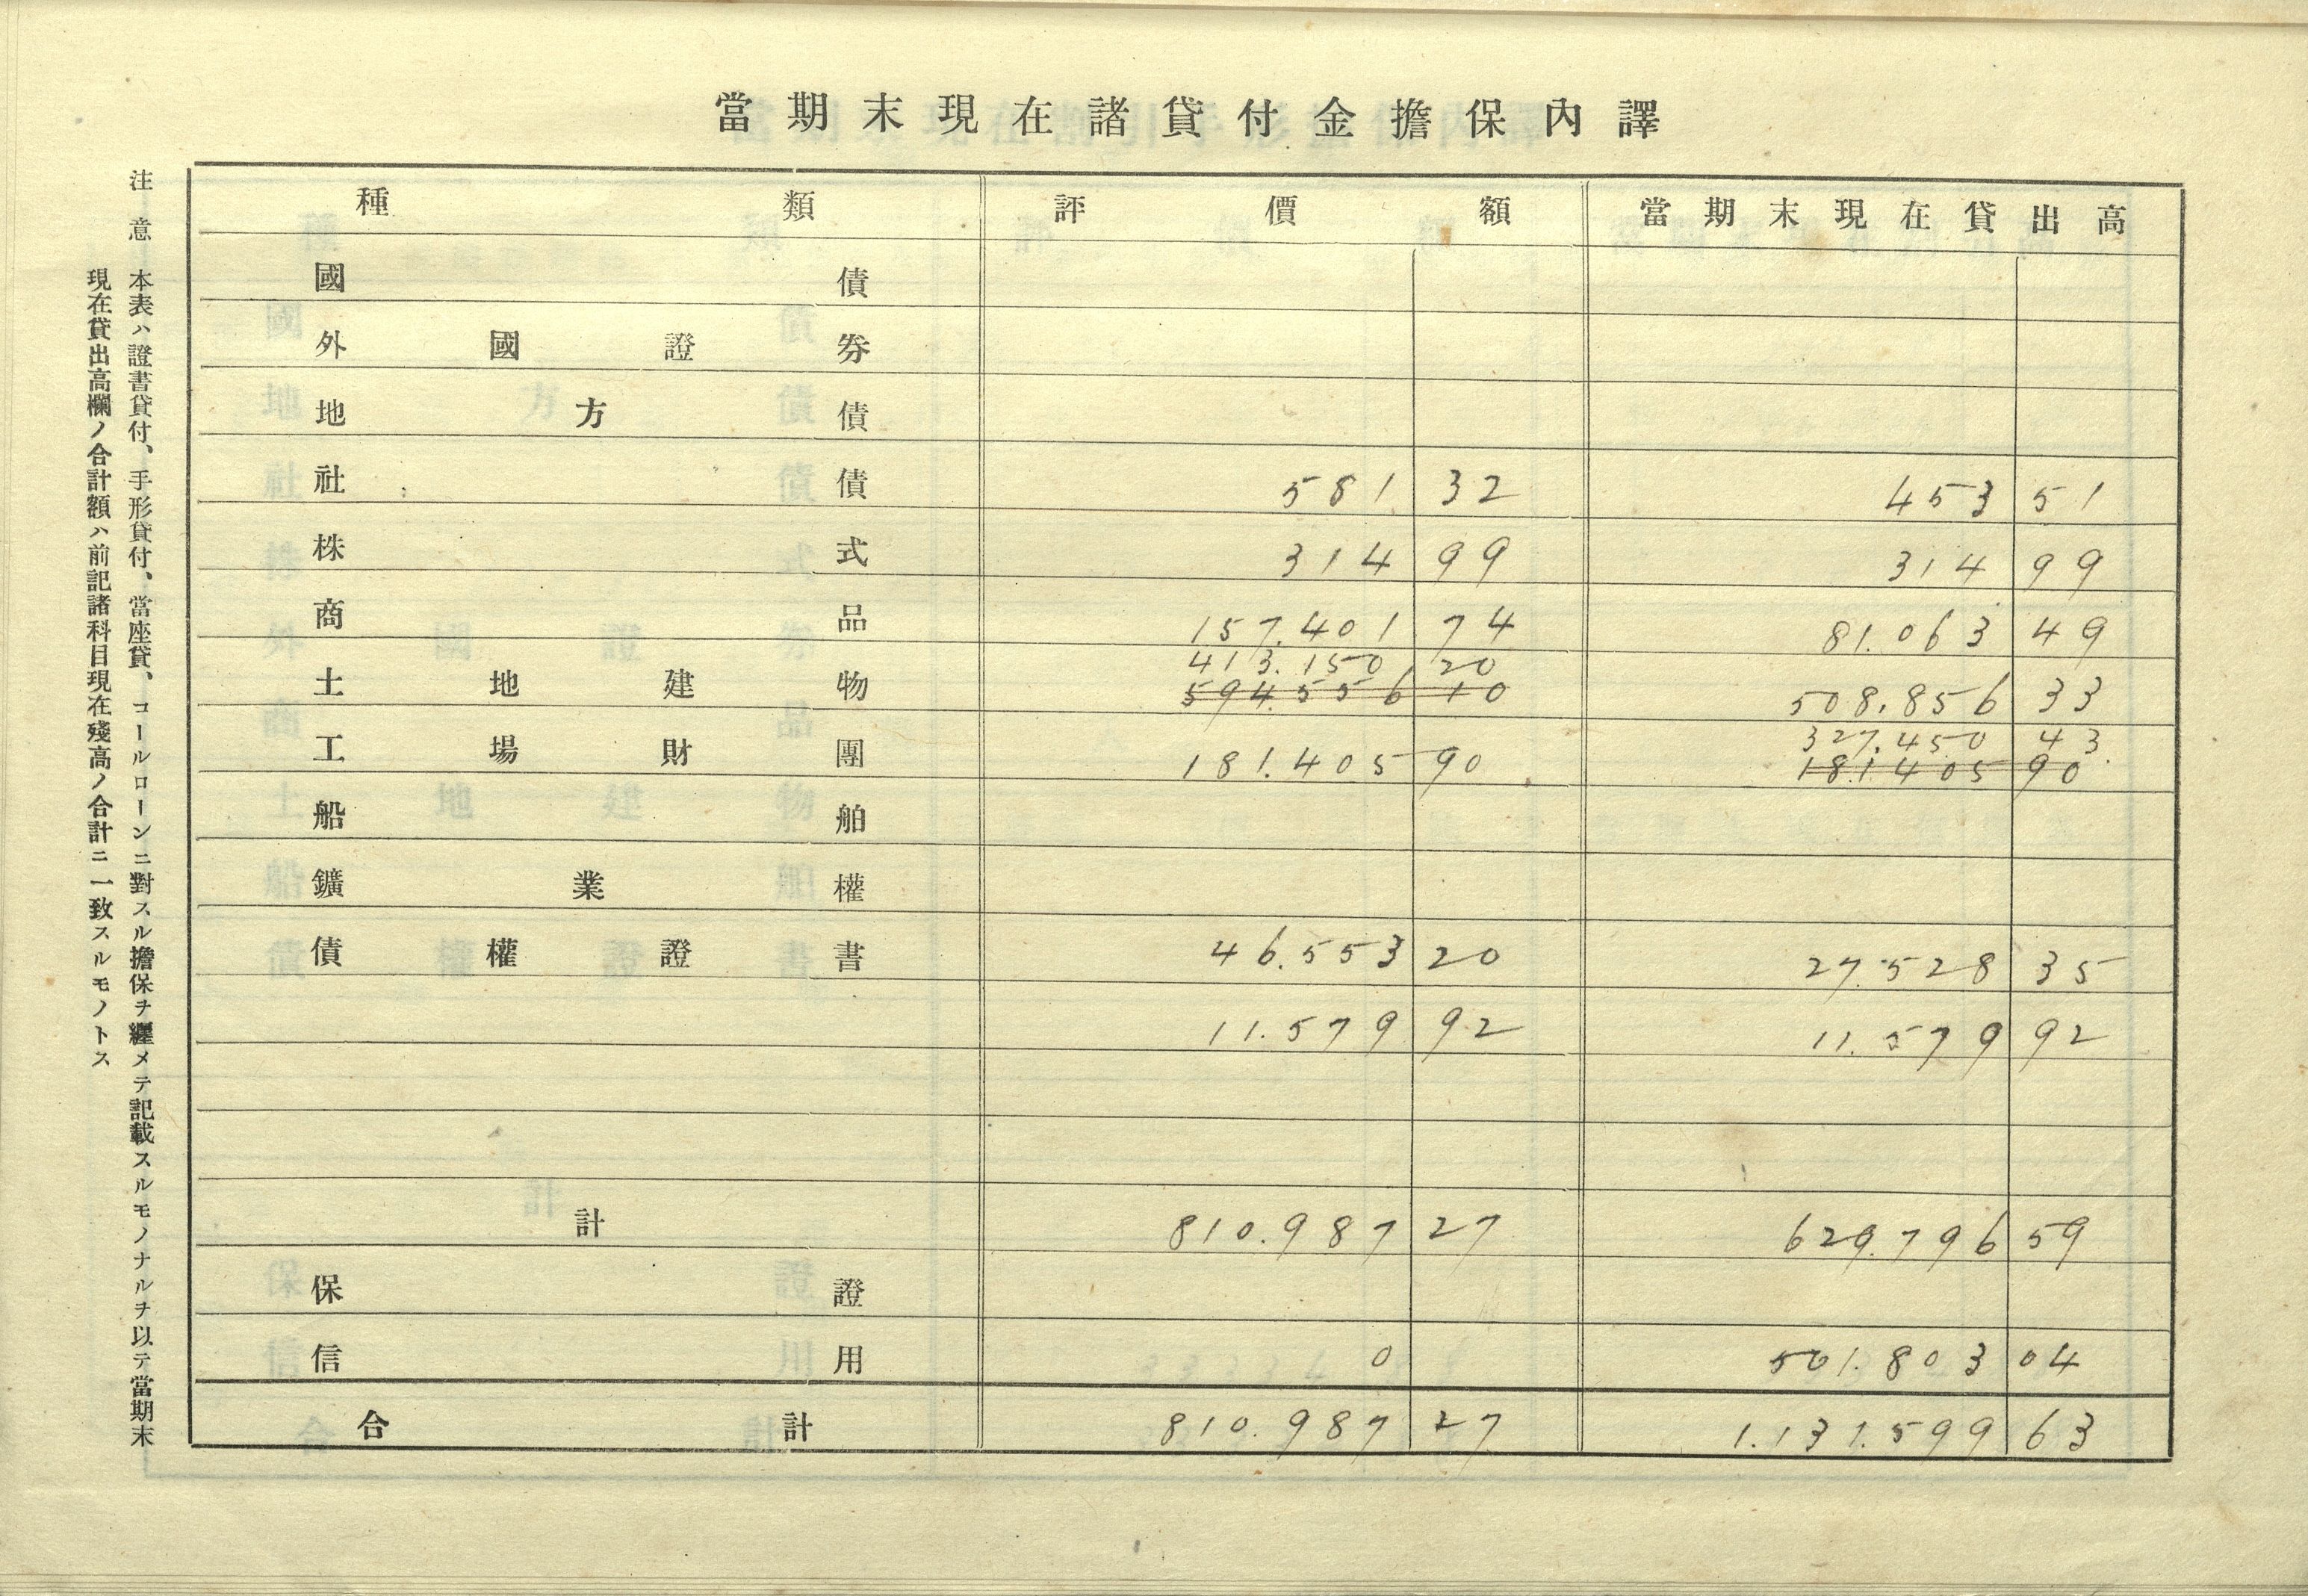 當期末現在諸貸付金擔保內譯
種類 評價額 當期末現在貸出高
國債
外國證券
地方債
社債 581 32 453 51
株式 314 99 314 99
商品 157.401 74 81.063 49
413.150 20
土地建物 594.556 10 508.856 33
327.450 43
工場財團 181.405 90 181.405 90
船舶
鑛業權
債權證書 46.553 20 27.528 35
11.579 92 11.579 92
計 810.987 27 629.796 59
保證
信用 0 501.803 04
合計 810.987 27 1.131.599 63
注意 本表ハ證書貸付、手形貸付、當座貸、コールローンニ對スル擔保ヲ纒メテ記載スルモノナルヲ以テ當期末
現在貸出高欄ノ合計額ハ前記諸科目現在殘高ノ合計ニ一致スルモノトス